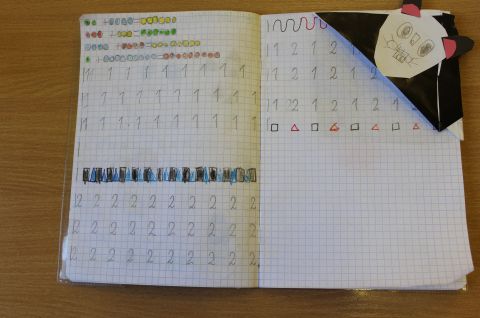 + =
+ =
+ =
+ =
11 1 1 1 1 1 1 1 1
11 1 1 1 1 1 1 1 1
11 1 1 1 1 1 1 1 1
12 2 2 2 2 2 2 2 2 2
12 2 2 2 2 2 2 2 2 2
12 2 2 2 2 2 2 2 2 2
11 2 1 2 1 2
11 2 1 2 1 2 1
11 2 1 2 1 2 1 2